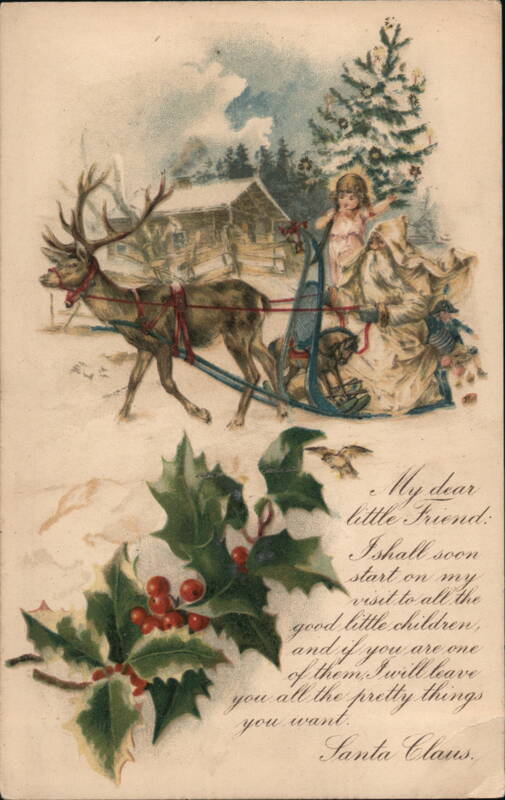 My dear
little Friend:
I shall soon
start on my
visit to all the
good little children,
and if you are one
of them, I will leave
you all the pretty things
you want.
Santa Claus.